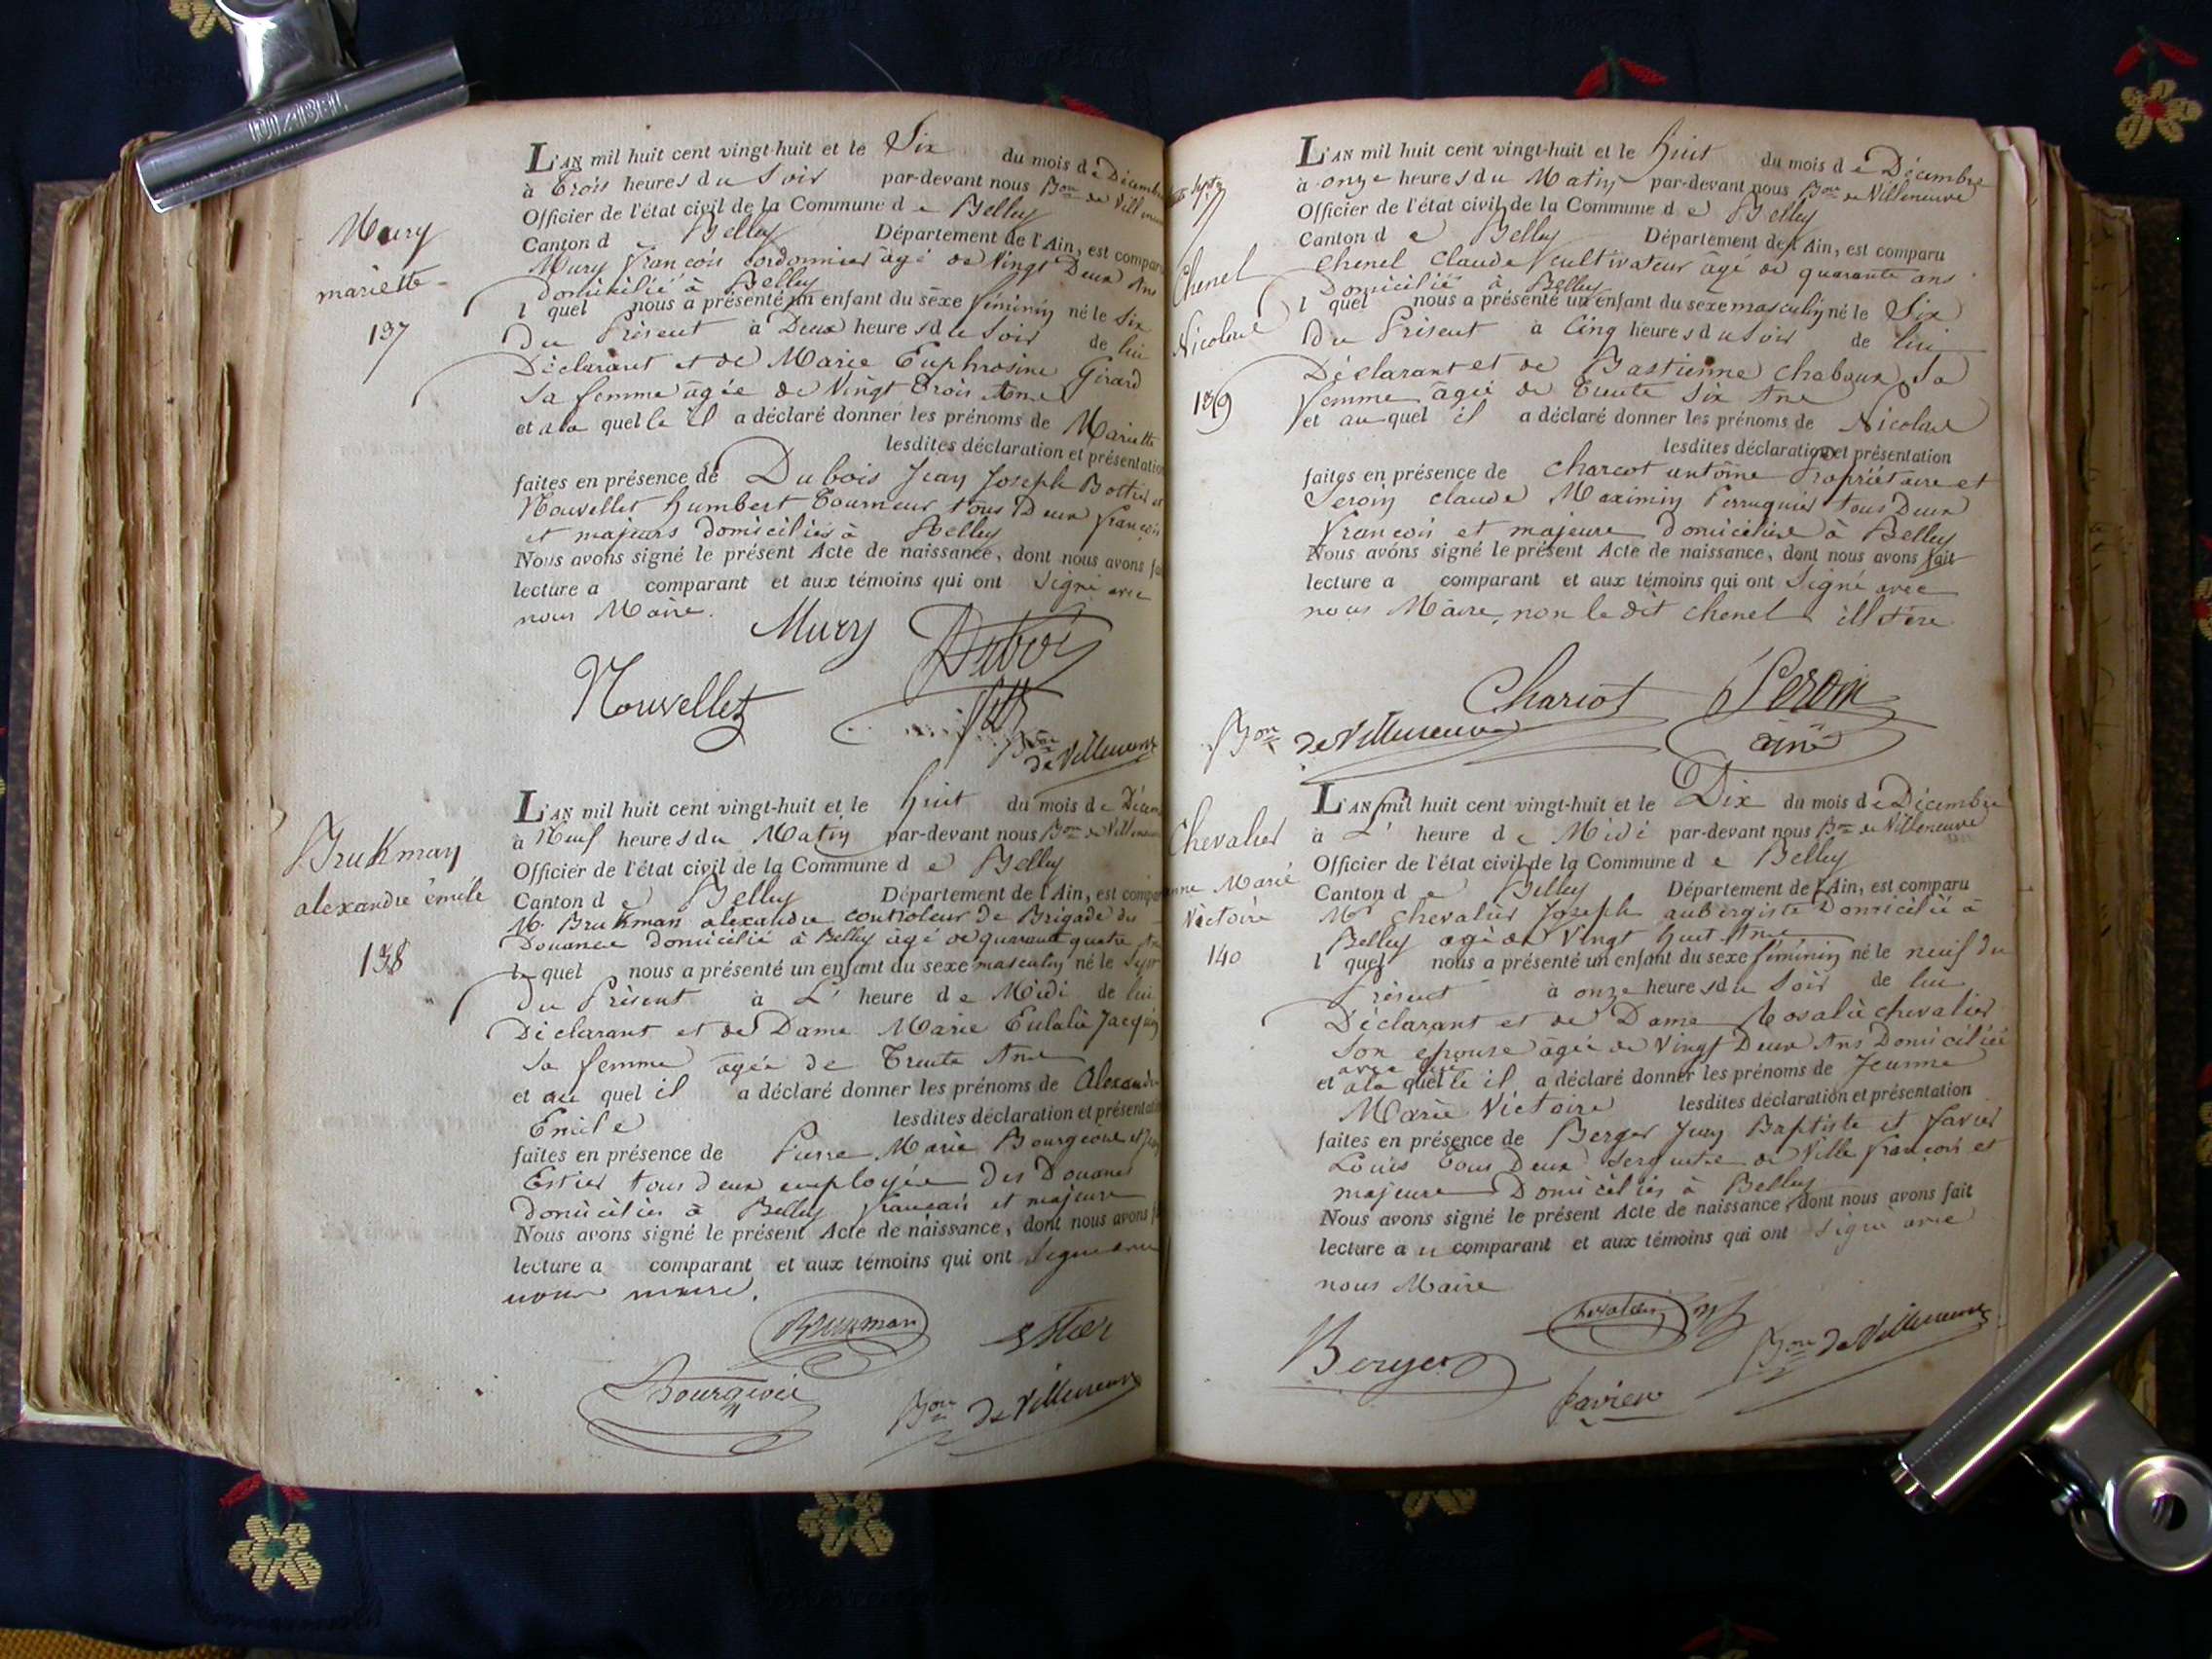 JIABEL
Mury
mariette
137
L'AN mil huit cent vingt-huit et le Six du mois de Décembre
à Trois heures du Soir par-devant nous Bon de Villeneuve
Officier de l'état civil de la Commune de Belley
Canton d Belley Département de l'Ain, est compar
Mury françois cordonnier âgé de Vingt Deux Ans
domicilié à Belley
l quel nous a présenté un enfant du sexe féminin né le Six
Du Présent à Deux heures du Soir de lui
Déclarant et de Marie Euphrosine Girard
Sa femme âgée de Vingt Trois Ans
et a la quelle il a déclaré donner les prénoms de Mariette
lesdites déclaration et présentation
faites en présence de Dubois Jean Joseph Bottier et
Nouvellet humbert Tourneur tous Deux françois
et majeurs domiciliés à Belley
Nous avons signé le présent Acte de naissance, dont nous avons fai
lecture a comparant et aux témoins qui ont Signé avec
nous Maire.
Mury Dubois
Nouvellet
Bon
de Villeneuve
Brukman
alexandre émile
138
L'AN mil huit cent vingt-huit et le huit du mois de Décem
à Neuf heures du Matin par-devant nous Bon de Villeneuve
Officier de l'état civil de la Commune de Belley
Canton de Belley Département de l'Ain, est compar
Mr Brukman alexandre controleur de Brigade des
Douanes domicilié à Belley âgé de quarante quatre Ans
le quel nous a présenté un enfant du sexe masculin né le Sept
Du Présent à L' heure de Midi de lui
Déclarant et de Dame Marie Eulalie Jacquin
Sa femme âgée de Trente Ans
et au quel il a déclaré donner les prénoms de Alexandre
Emile lesdites déclaration et présentation
faites en présence de Pierre Marie Bourgeois et
Estier tous deux employés des Douanes
domiciliés à Belley francais et majeurs
Nous avons signé le présent Acte de naissance, dont nous avons f
lecture a comparant et aux témoins qui ont Signé avec
nous maire.
Brukman Estier
Bourgeois Bon de Villeneuve
Chenel
Nicolas
139
L'AN mil huit cent vingt-huit et le huit du mois de Décembre
à onze heures du Matin par-devant nous Bon de Villeneuve
Officier de l'état civil de la Commune de Belley
Canton de Belley Département de l'Ain, est comparu
Chenel Claude cultivateur âgé de quarante ans
Domicilié à Belley
l quel nous a présenté un enfant du sexe masculin né le Six
Du Présent à Cinq heures du Soir de lui
Déclarant et de Bastienne chaboux Sa
femme âgée de Trente Six Ans
et au quel il a déclaré donner les prénoms de Nicolas
lesdites déclaration et présentation
faites en présence de Charcot antoine Propriétaire et
Peroin claude Maximin Perruquier tous Deux
françois et majeurs domiciliés à Belley
Nous avons signé le présent Acte de naissance, dont nous avons fait
lecture a comparant et aux témoins qui ont Signé avec
nous Maire, non le dit Chenel illitéré
Charcot Peroin
ainé
Bon de Villeneuve
Chevalier
anne Marie
Victoire
140
L'AN mil huit cent vingt-huit et le Dix du mois de Décembre
à L' heure de Midi par-devant nous Bon de Villeneuve
Officier de l'état civil de la Commune de Belley
Canton de Belley Département de l'Ain, est comparu
Mr Chevalier Joseph aubergiste Domicilié à
Belley agé de Vingt huit Ans
l quel nous a présenté un enfant du sexe féminin né le neuf du
Présent à onze heures du Soir de lui
Déclarant et de Dame Rosalie chevalier
Son epouse âgée de Vingt Deux Ans Domiciliée
avec lui
et a la quelle il a déclaré donner les prénoms de Jeanne
Marie Victoire lesdites déclaration et présentation
faites en présence de Berger Jean Baptiste et favier
Louis Tous Deux Sergents de Ville françois et
majeurs Domiciliés à Belley
Nous avons signé le présent Acte de naissance, dont nous avons fait
lecture au comparant et aux témoins qui ont signé avec
nous Maire
Chevalier
Berger Bon de Villeneuve
favier